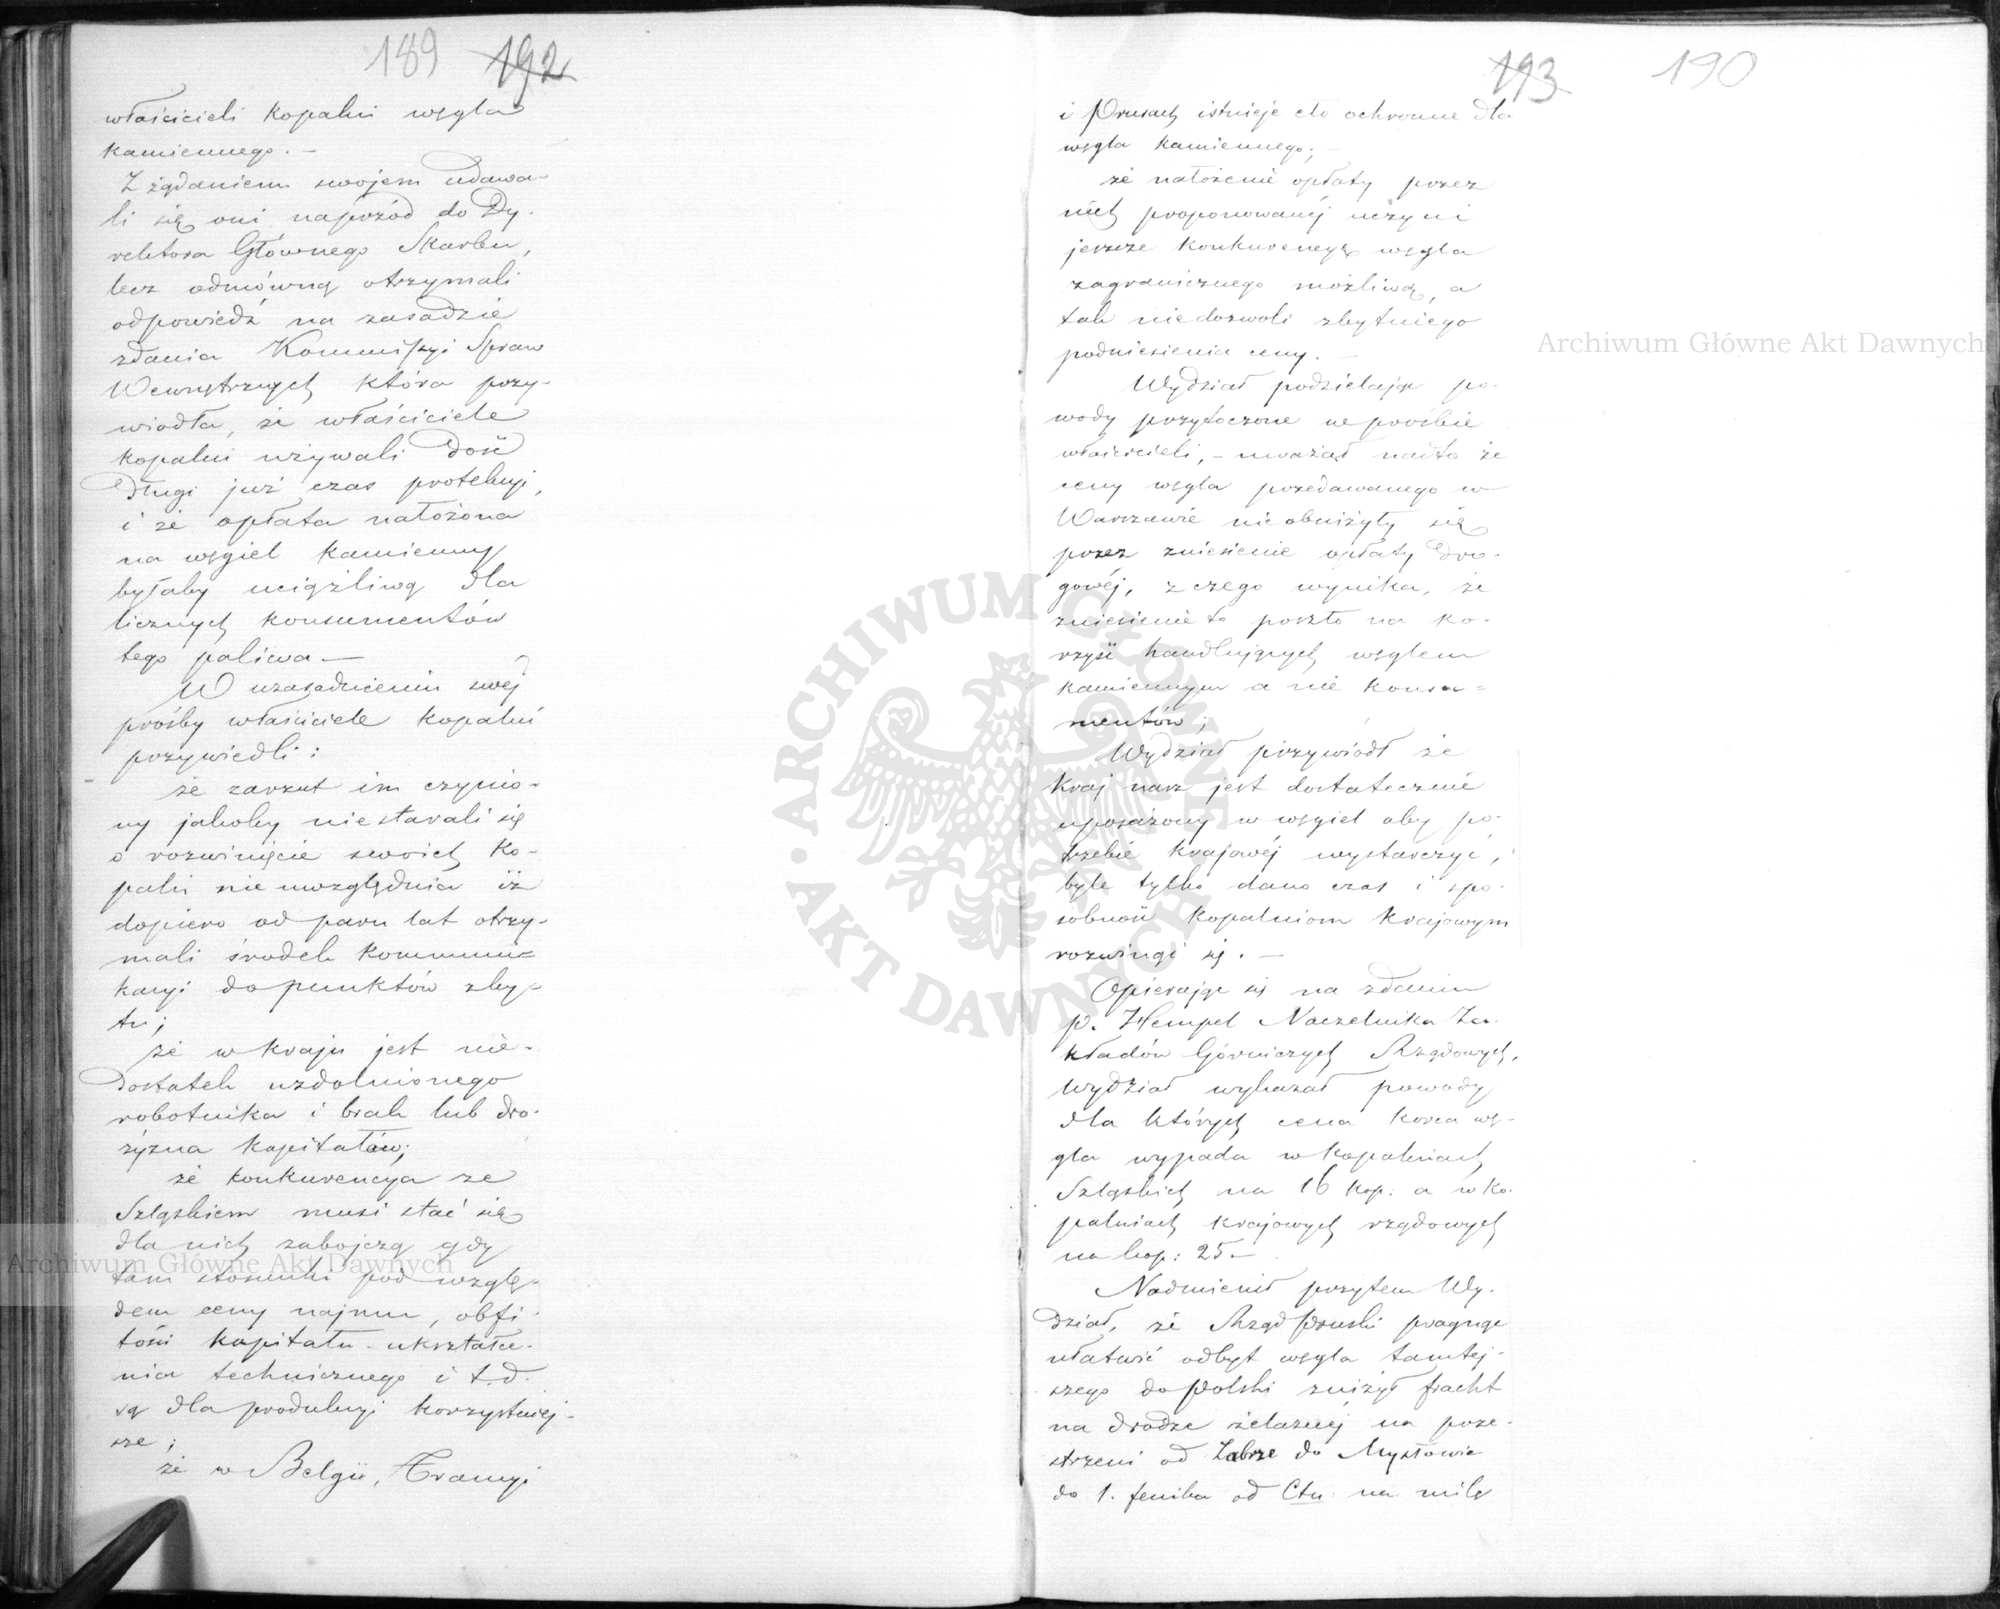 189 192
właścicieli kopalni węgla
kamiennego. —
Z żądaniem swojem udawa-
li się oni naprzód do Dy-
rektora Głównego Skarbu,
lecz odmówną otrzymali
odpowiedź na zasadzie
zdania Kommissyi Spraw
Wewnętrznych która przy-
wiodła, że właściciele
kopalni używali dość
długi już czas protekcyi,
i że opłata nałożona
na węgiel kamienny
byłaby uciążliwą dla
licznych konsumentów
tego paliwa —
W uzasadnieniu swéj
prośby właściciele kopalni
przywiedli:
że zarzut im czynio-
ny jakoby niestarali się
o rozwinięcie swoich ko-
palń nie uwzględnia iż
dopiero od paru lat otrzy-
mali środek kommuni-
kacyi do punktów zby-
tu;
że w kraju jest nie-
dostatek uzdolnionego
robotnika i brak lub dro-
żyzna kapitałów;
że konkurencya ze
Szląskiem musi stać się
dla nich zabójczą gdy
tam stosunki pod wzglę-
dem ceny najmu, obfi-
tości kapitału - ukształce-
nia technicznego i t.d.
są dla produkcyi korzystniej-
sze;
że w Belgii, Francyi
193 190
i Prusach istnieje cło ochronne dla
węgla kamiennego; —
że nałożenie opłaty przez
nich proponowanéj uczyni
jeszcze konkurencyę węgla
zagranicznego możliwą, a
tak niedozwoli zbytniego
podniesienia ceny. —
Wydział podzielając po-
wody przytoczone w prośbie
właścicieli, - uważał nadto że
ceny węgla przedawanego w
Warszawie nieobniżyły się
przez zniesienie opłaty dro-
gowéj, z czego wynika, że
zniesienie to poszło na ko-
rzyść handlujących węglem
kamiennym a nie konsu-
mentów;
Wydział przywiódł że
kraj nasz jest dostatecznie
uposażony w węgiel aby po-
trzebie krajowéj wystarczyć,
byle tylko dano czas i spo-
sobność kopalniom krajowym
rozwinąć się. —
Opierając się na zdaniu
p. Hempel Naczelnika Za-
kładów Górniczych Rządowych,
wydział wykazał powody
dla których cena korca wę-
gla wypada w kopalniach
Szląskich na 16 kop: a w ko-
palniach krajowych rządowych
na kop: 25.—
Nadmienił przytem Wy-
dział, że Rząd Pruski pragnąc
ułatwić odbyt węgla tamtej-
szego do Polski zniżył fracht
na drodze żelaznéj na prze-
strzeni od Zabrze do Mysłowic
do 1. fenika od Ctn: na milę
Archiwum Główne Akt Dawnych
ARCHIWUM GŁÓWNE · AKT DAWNYCH ·
Archiwum Główne Akt Dawnych